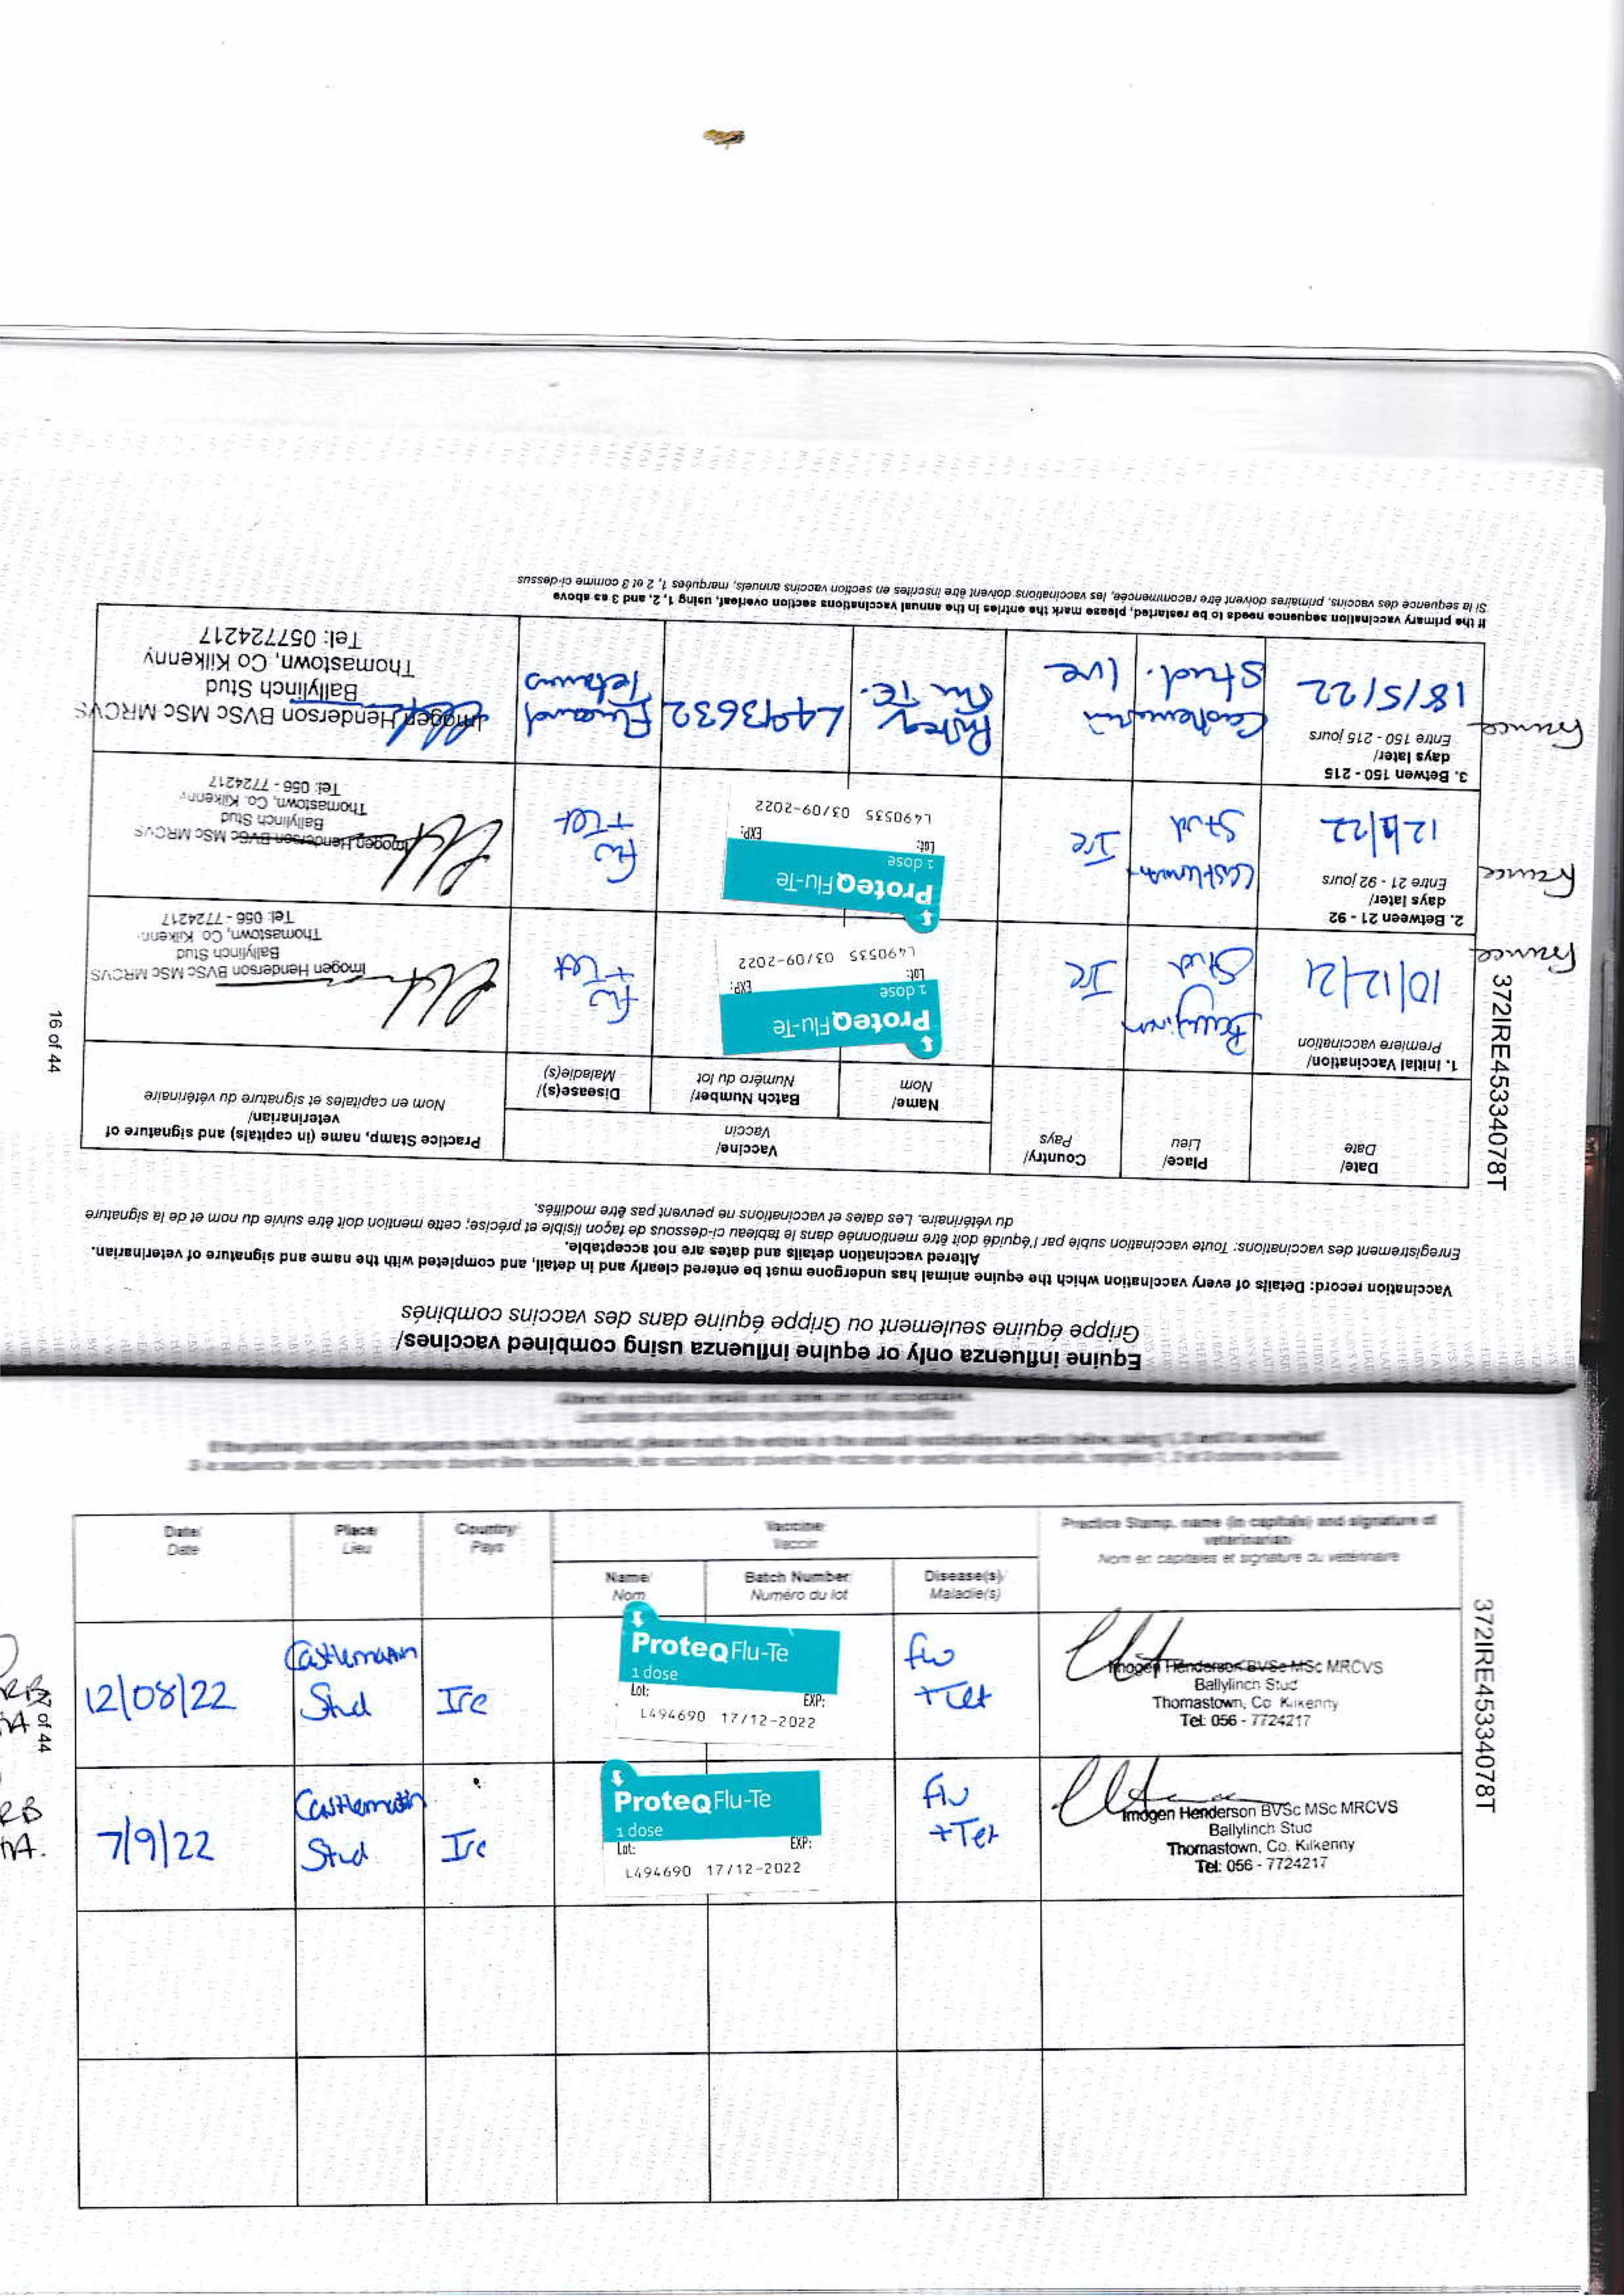 Equine influenza only or equine influenza using combined vaccines/
Grippe équine seulement ou Grippe équine dans des vaccins combinés
Vaccination record: Details of every vaccination which the equine animal has undergone must be entered clearly and in detail, and completed with the name and signature of veterinarian.
Altered vaccination details and dates are not acceptable.
Enregistrement des vaccinations: Toute vaccination subie par l'équidé doit être mentionnée dans le tableau ci-dessous de façon lisible et précise; cette mention doit être suivie du nom et de la signature
du vétérinaire. Les dates et vaccinations ne peuvent pas être modifiés.
Date/
Date
Place/
Lieu
Country/
Pays
Vaccine/
Vaccin
Name/
Nom
Batch Number/
Numéro du lot
Disease(s)/
Maladie(s)
Practice Stamp, name (in capitals) and signature of
veterinarian/
Nom en capitales et signature du vétérinaire
1. Initial Vaccination/
Premiere vaccination
10/12/21
Stud
Ire
ProteqFlu-Te
1 dose
Lot:
EXP:
L490535 03/09-2022
Flu
+ Tet
Imogen Henderson BVSc MSc MRCVS
Ballylinch Stud
Thomastown, Co. Kilkenny
Tel: 056 - 7724217
2. Between 21 - 92
days later/
Entre 21 - 92 jours
Stud
Ire
ProteqFlu-Te
1 dose
Lot:
EXP:
L490535 03/09-2022
Flu
+ Tet
Imogen Henderson BVSc MSc MRCVS
Ballylinch Stud
Thomastown, Co. Kilkenny
Tel: 056 - 7724217
3. Betwen 150 - 215
days later/
Entre 150 - 215 jours
18/5/22
Castlemartin
Stud.
Ire
Proteq
Flu TE.
L4913632
Flu and
Tetanus
Imogen Henderson BVSc MSc MRCVS
Ballylinch Stud
Thomastown, Co Kilkenny
Tel: 0577724217
If the primary vaccination sequence needs to be restarted, please mark the entries in the annual vaccinations section overleaf, using 1, 2, and 3 as above
Si la sequence des vaccins, primaires doivent être recommencée, les vaccinations doivent être inscrites en section vaccins annuels, marquées 1, 2 et 3 comme ci-dessus
372IRE45334078T
16 of 44
Date/
Date
Place
Lieu
Country/
Pays
Vaccine
Vaccin
Name/
Nom
Batch Number/
Numéro du lot
Disease(s)/
Maladie(s)
Practice Stamp, name (in capitals) and signature of
veterinarian
Nom en capitales et signature du vétérinaire
12/08/22
Castlemartin
Stud
Ire
ProteqFlu-Te
1 dose
Lot:
EXP:
L494690 17/12-2022
flu
+ Tet
Imogen Henderson BVSc MSc MRCVS
Ballylinch Stud
Thomastown, Co Kilkenny
Tel: 056 - 7724217
7/9/22
Castlemartin
Stud
Ire
ProteqFlu-Te
1 dose
Lot:
EXP:
L494690 17/12-2022
flu
+ Tet
Imogen Henderson BVSc MSc MRCVS
Ballylinch Stud
Thomastown, Co. Kilkenny
Tel: 056 - 7724217
372IRE45334078T
of 44